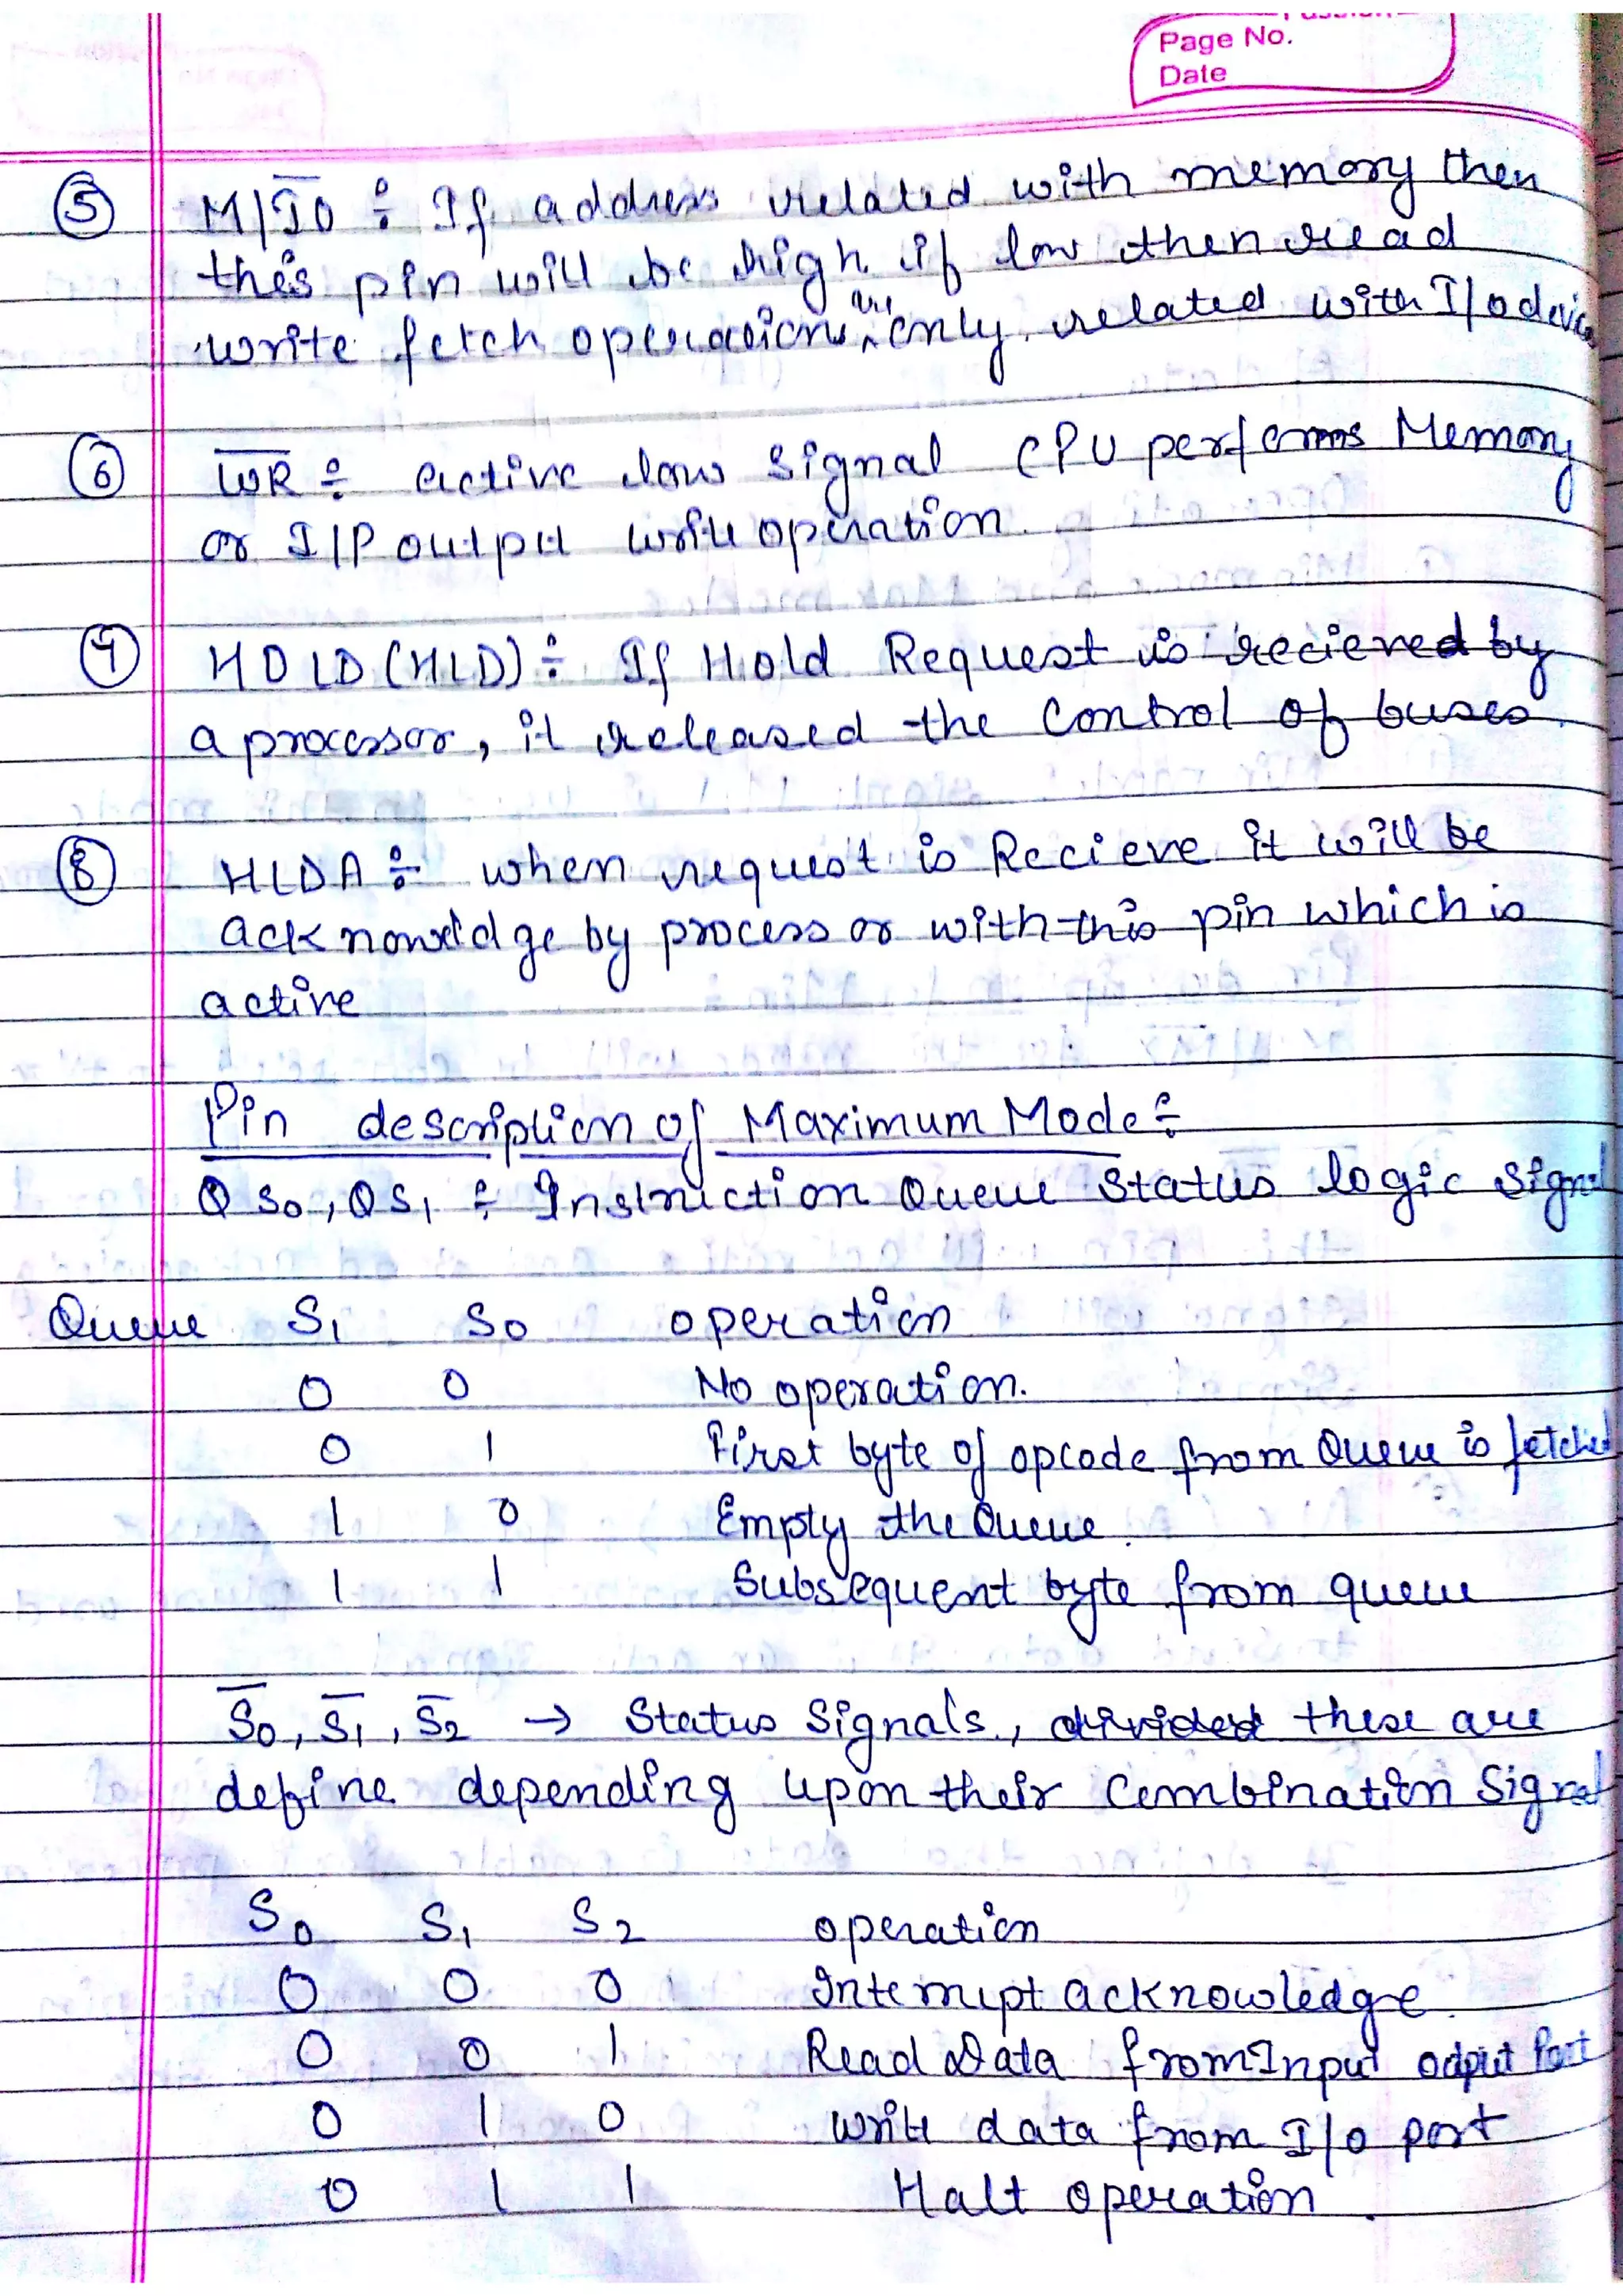 Page No.
Date
⑤ M/I̅O̅ ÷ If address related with memory then
this pin will be high if low then read
write fetch operations are only related with I/o device
⑥ W̅R̅ ÷ active low signal CPU performs Memory
or I/P output write operation.
⑦ HOLD (HLD) ÷ If Hold Request is recieved by
a processor, it released the control of buses.
⑧ HLDA ÷ when request is Recieve it will be
acknowledge by processor with this pin which is
active
Pin description of Maximum Mode ÷
QS0, QS1 ÷ Instruction Queue Status logic Signal
Queue S1 S0 operation
0 0 No operation.
0 1 First byte of opcode from Queue is fetched
1 0 Empty the Queue.
1 1 Subsequent byte from queue
S̅0, S̅1, S̅2 → Status Signals, divided these are
define depending upon their Combination Signal
S0 S1 S2 operation
0 0 0 Interrupt acknowledge.
0 0 1 Read Data from Input output Port
0 1 0 write data from I/o port
0 1 1 Halt operation.